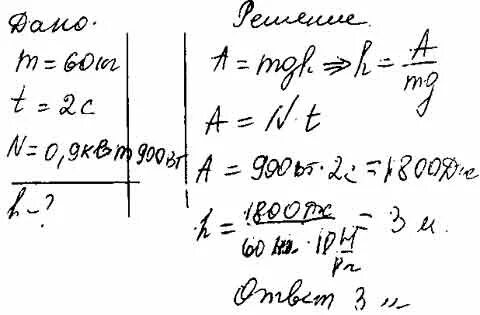 Дано.
m = 60кг
t = 2с
N = 0,9квт 900вт
h - ?
Решение.
A = mgh ⇒ h = A/mg
A = N·t
A = 900вт · 2с = 1800Дж
h = 1800Дж / 60 кг · 10 Н/кг = 3 м.
Ответ 3 м